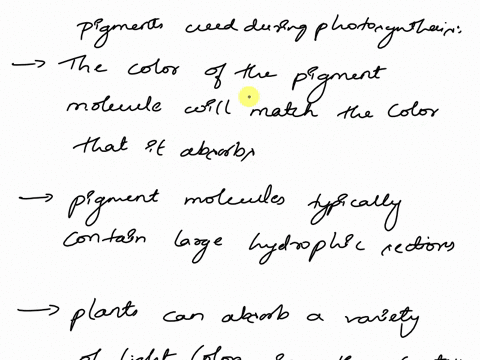 pigments used during photosynthesis:
→ The color of the pigment
molecule will match the color
that it absorbs
→ pigment molecules typically
contain large hydrophic sections
→ plants can absorb a variety
of light color in the